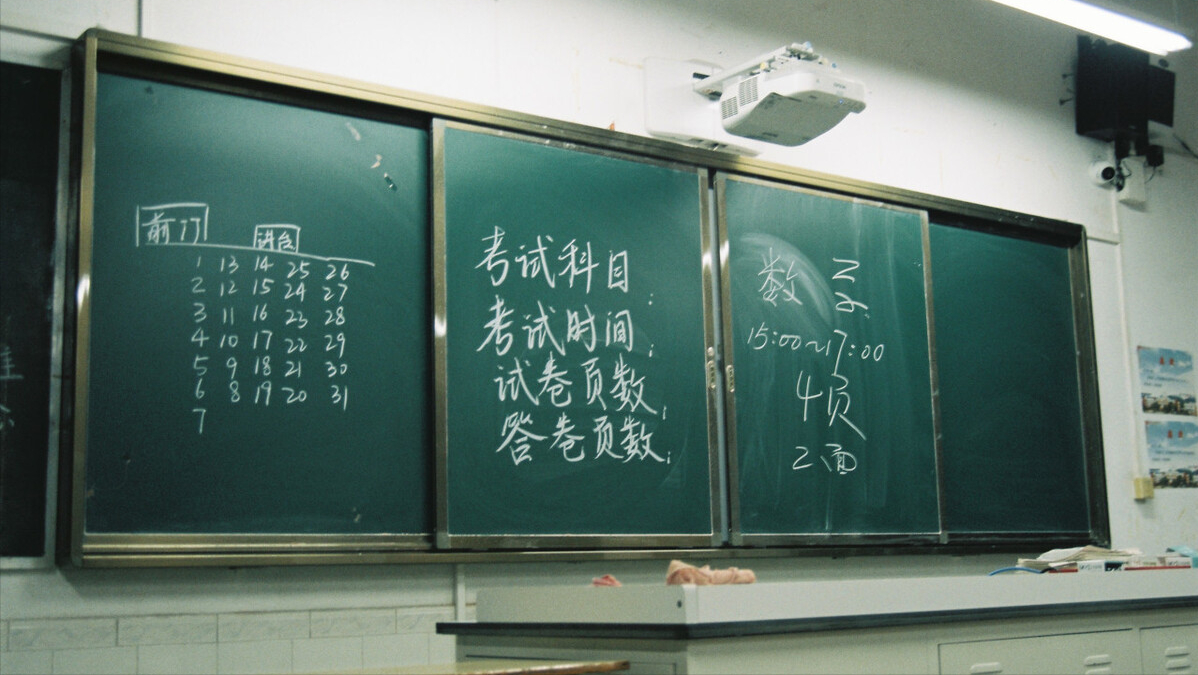 前门
讲台
1 13 14 25 26
2 12 15 24 27
3 11 16 23 28
4 10 17 22 29
5 9 18 21 30
6 8 19 20 31
7
考试科目:
考试时间:
试卷页数:
答卷页数:
数学
15:00~17:00
4页
2面